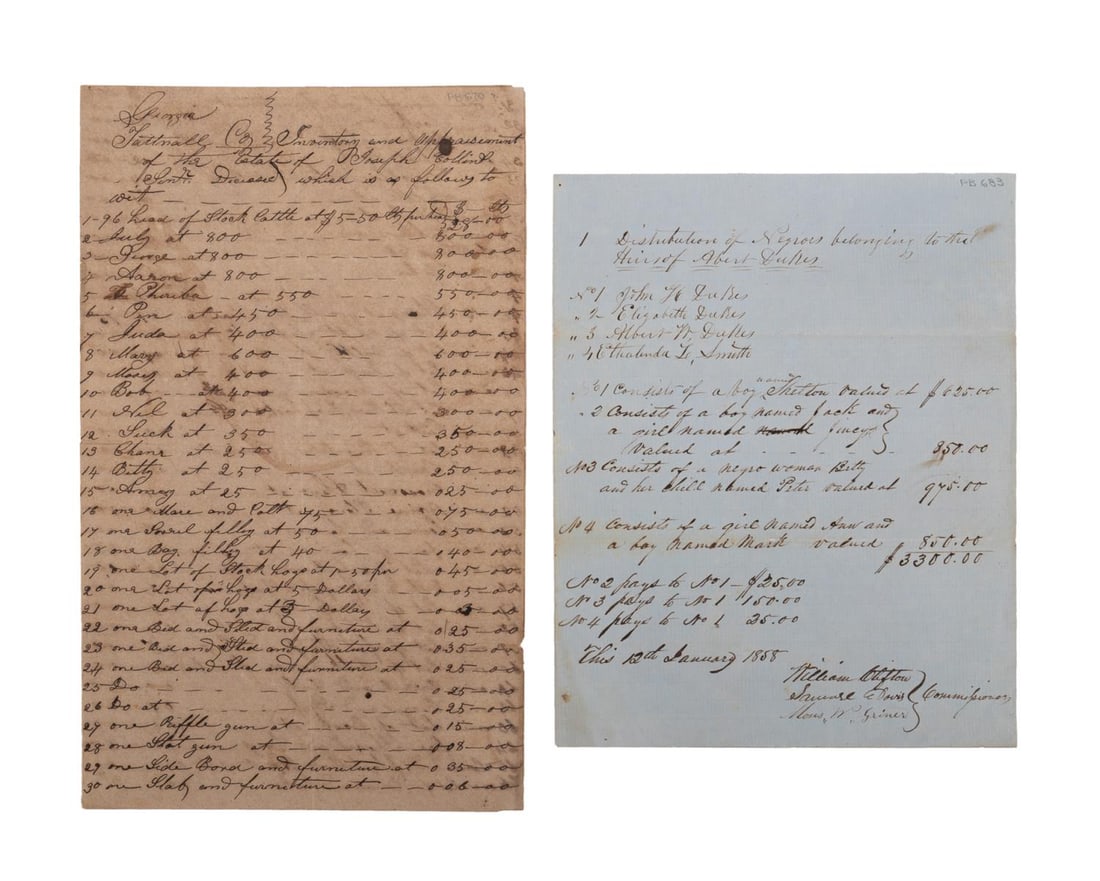 PB 670
Georgia
Tattnall Co Inventory and appraisement
of the Estate of Joseph Collins
Senr. Deceased which is as follows to
wit $ Cts
1-96 head of Stock Cattle at $5-50 Cts per head 528-00
2 July at 800 800-00
3 George at 800 800-00
4 Aaron at 800 800-00
5 Pheriba at 550 550-00
6 Pen at 450 450-00
7 Juda at 400 400-00
8 Mary at 600 600-00
9 Moses at 400 400-00
10 Bob at 400 400-00
11 at 300 300-00
12 Suck at 350 350-00
13 Chane at 250 250-00
14 Bitty at 250 250-00
15 Amey at 25 025-00
16 one Mare and Colt 75 075-00
17 one Sorril filley at 50 050-00
18 one Bay filley at 40 040-00
19 one Lot of Stock hogs at 1-50 pr 045-00
20 one Lot of hogs at 5 Dollars 005-00
21 one Lot of hogs at 3 Dollars 0 3-00
22 one Bed and Sted and furniture at 025-00
23 one Bed and Sted and furniture at 035-00
24 one Bed and Sted and furniture at 025-00
25 Do 025-00
26 Do at 025-00
27 one Riffle gun at 015-00
28 one Shot gun at 008-00
29 one Side Bord and furniture at 035-00
30 one Slab and furniture at 006-00
PB 683
1 Distribution of Negros belonging to the
Heirs of Abert Dukes
No 1 John H Dukes
" 2 Elizabeth Dukes
" 3 Albert W. Dukes
" 4 Ethalinda Smith
No 1 Consists of a boy named Shelton valued at $625.00
" 2 Consists of a boy named Jack and
a girl named
Valued at 850.00
No 3 Consists of a negro woman Betty
and her child named Peter valued at 975.00
No 4 Consists of a girl named Ann and
a boy named Mark valued 850.00
$3300.00
No 2 pays to No 1 $25.00
No 3 pays to No 1 150.00
No 4 pays to No 1 25.00
This 12th January 1858
William Clifton
Davis Commissioners
W. Griner